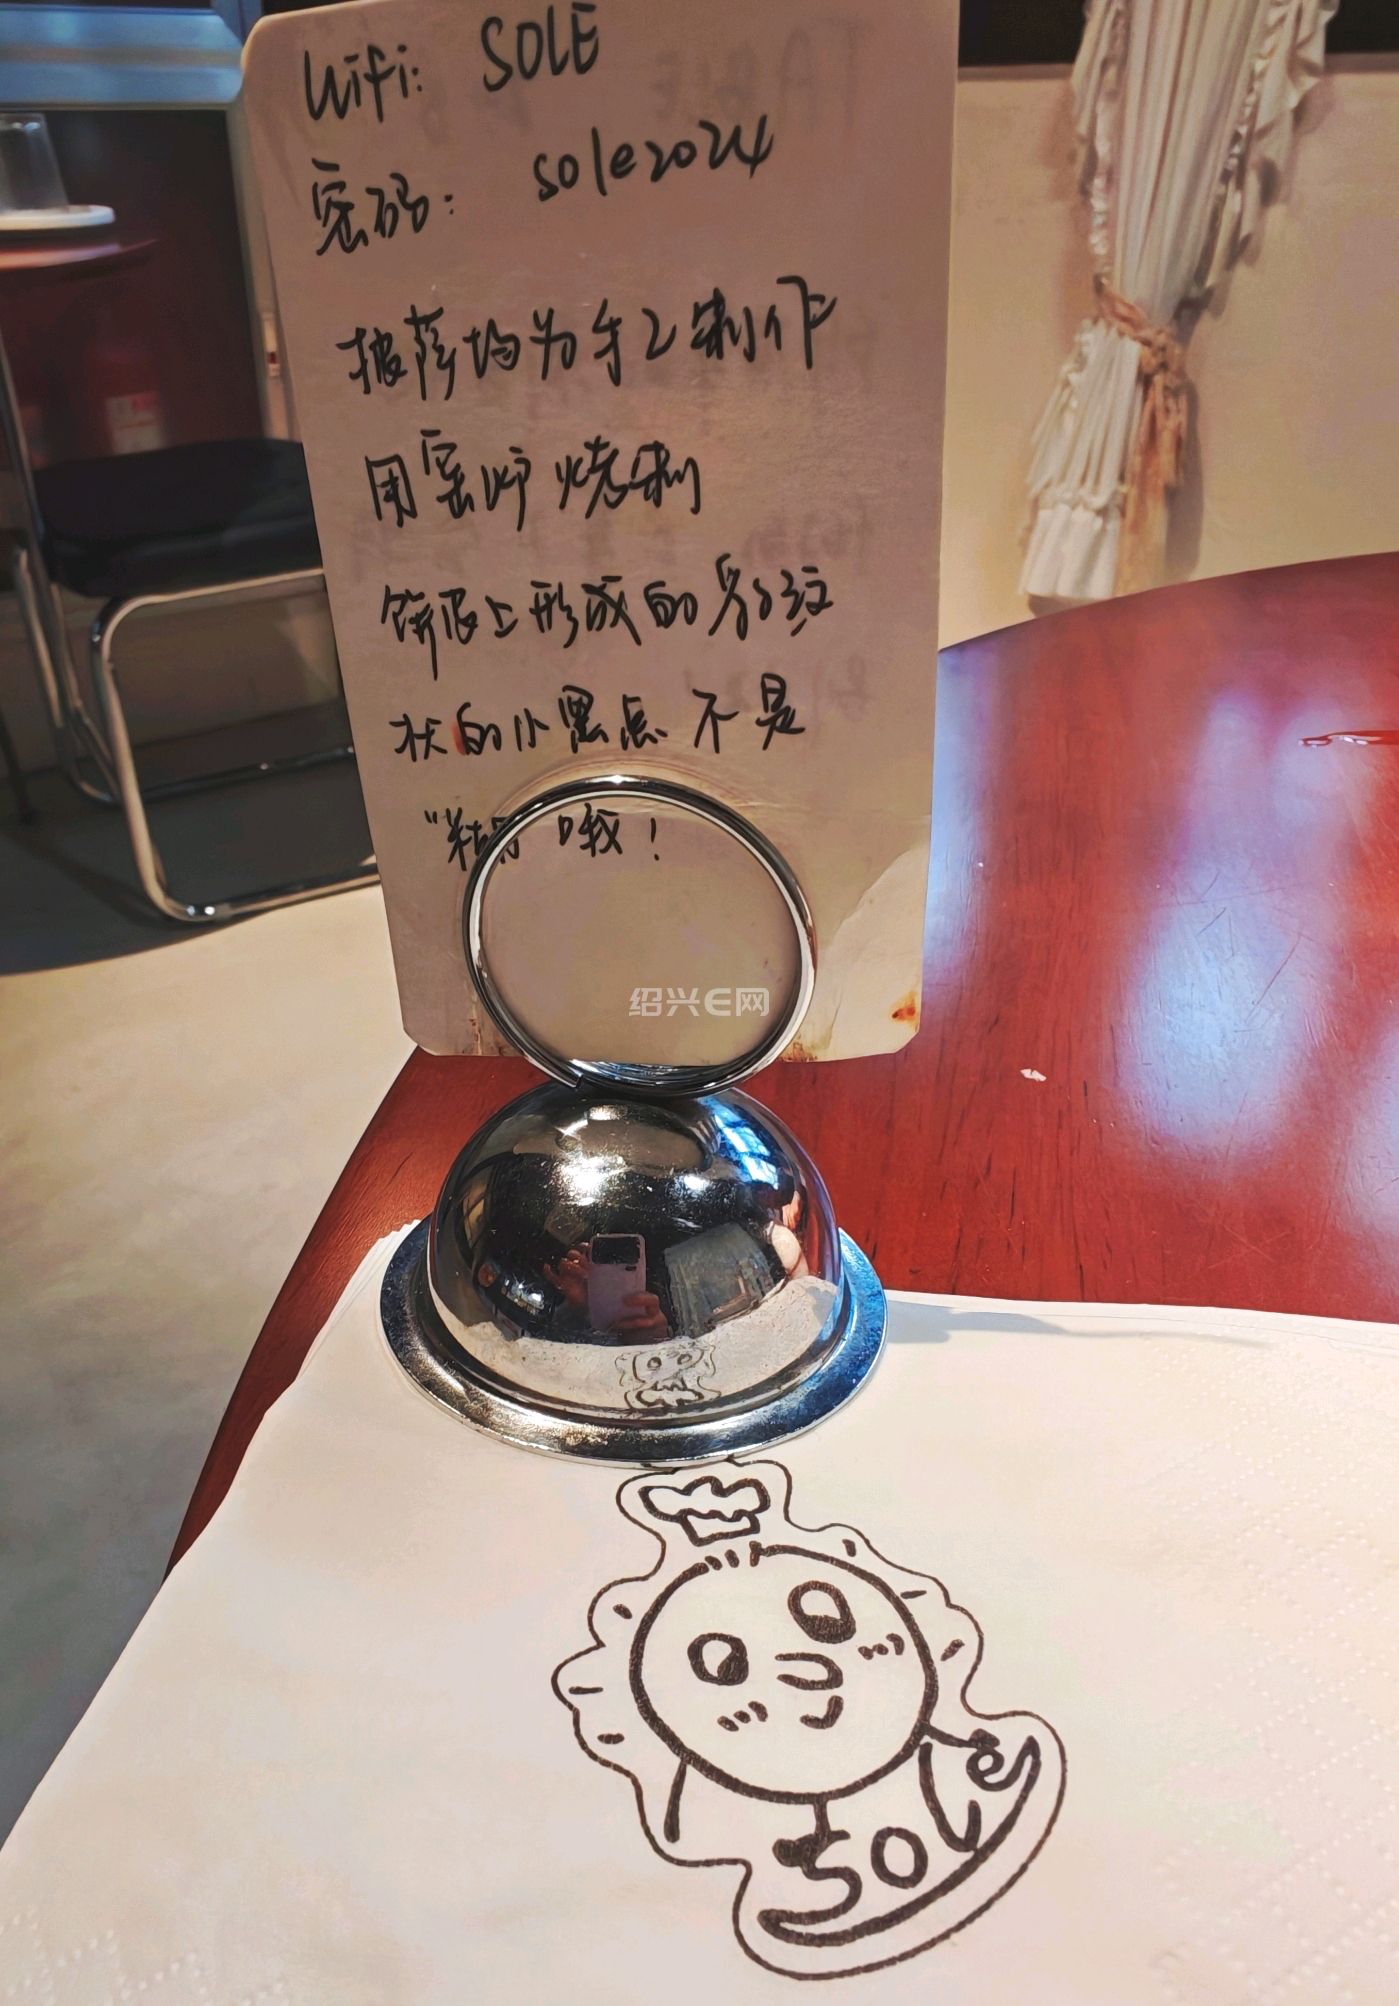 Wifi: SOLE
密码: sole2024
披萨均为手工制作
用窑炉烧制
饼底上形成的豹纹
状的小黑点不是
"糊了"哦!
绍兴E网
sole